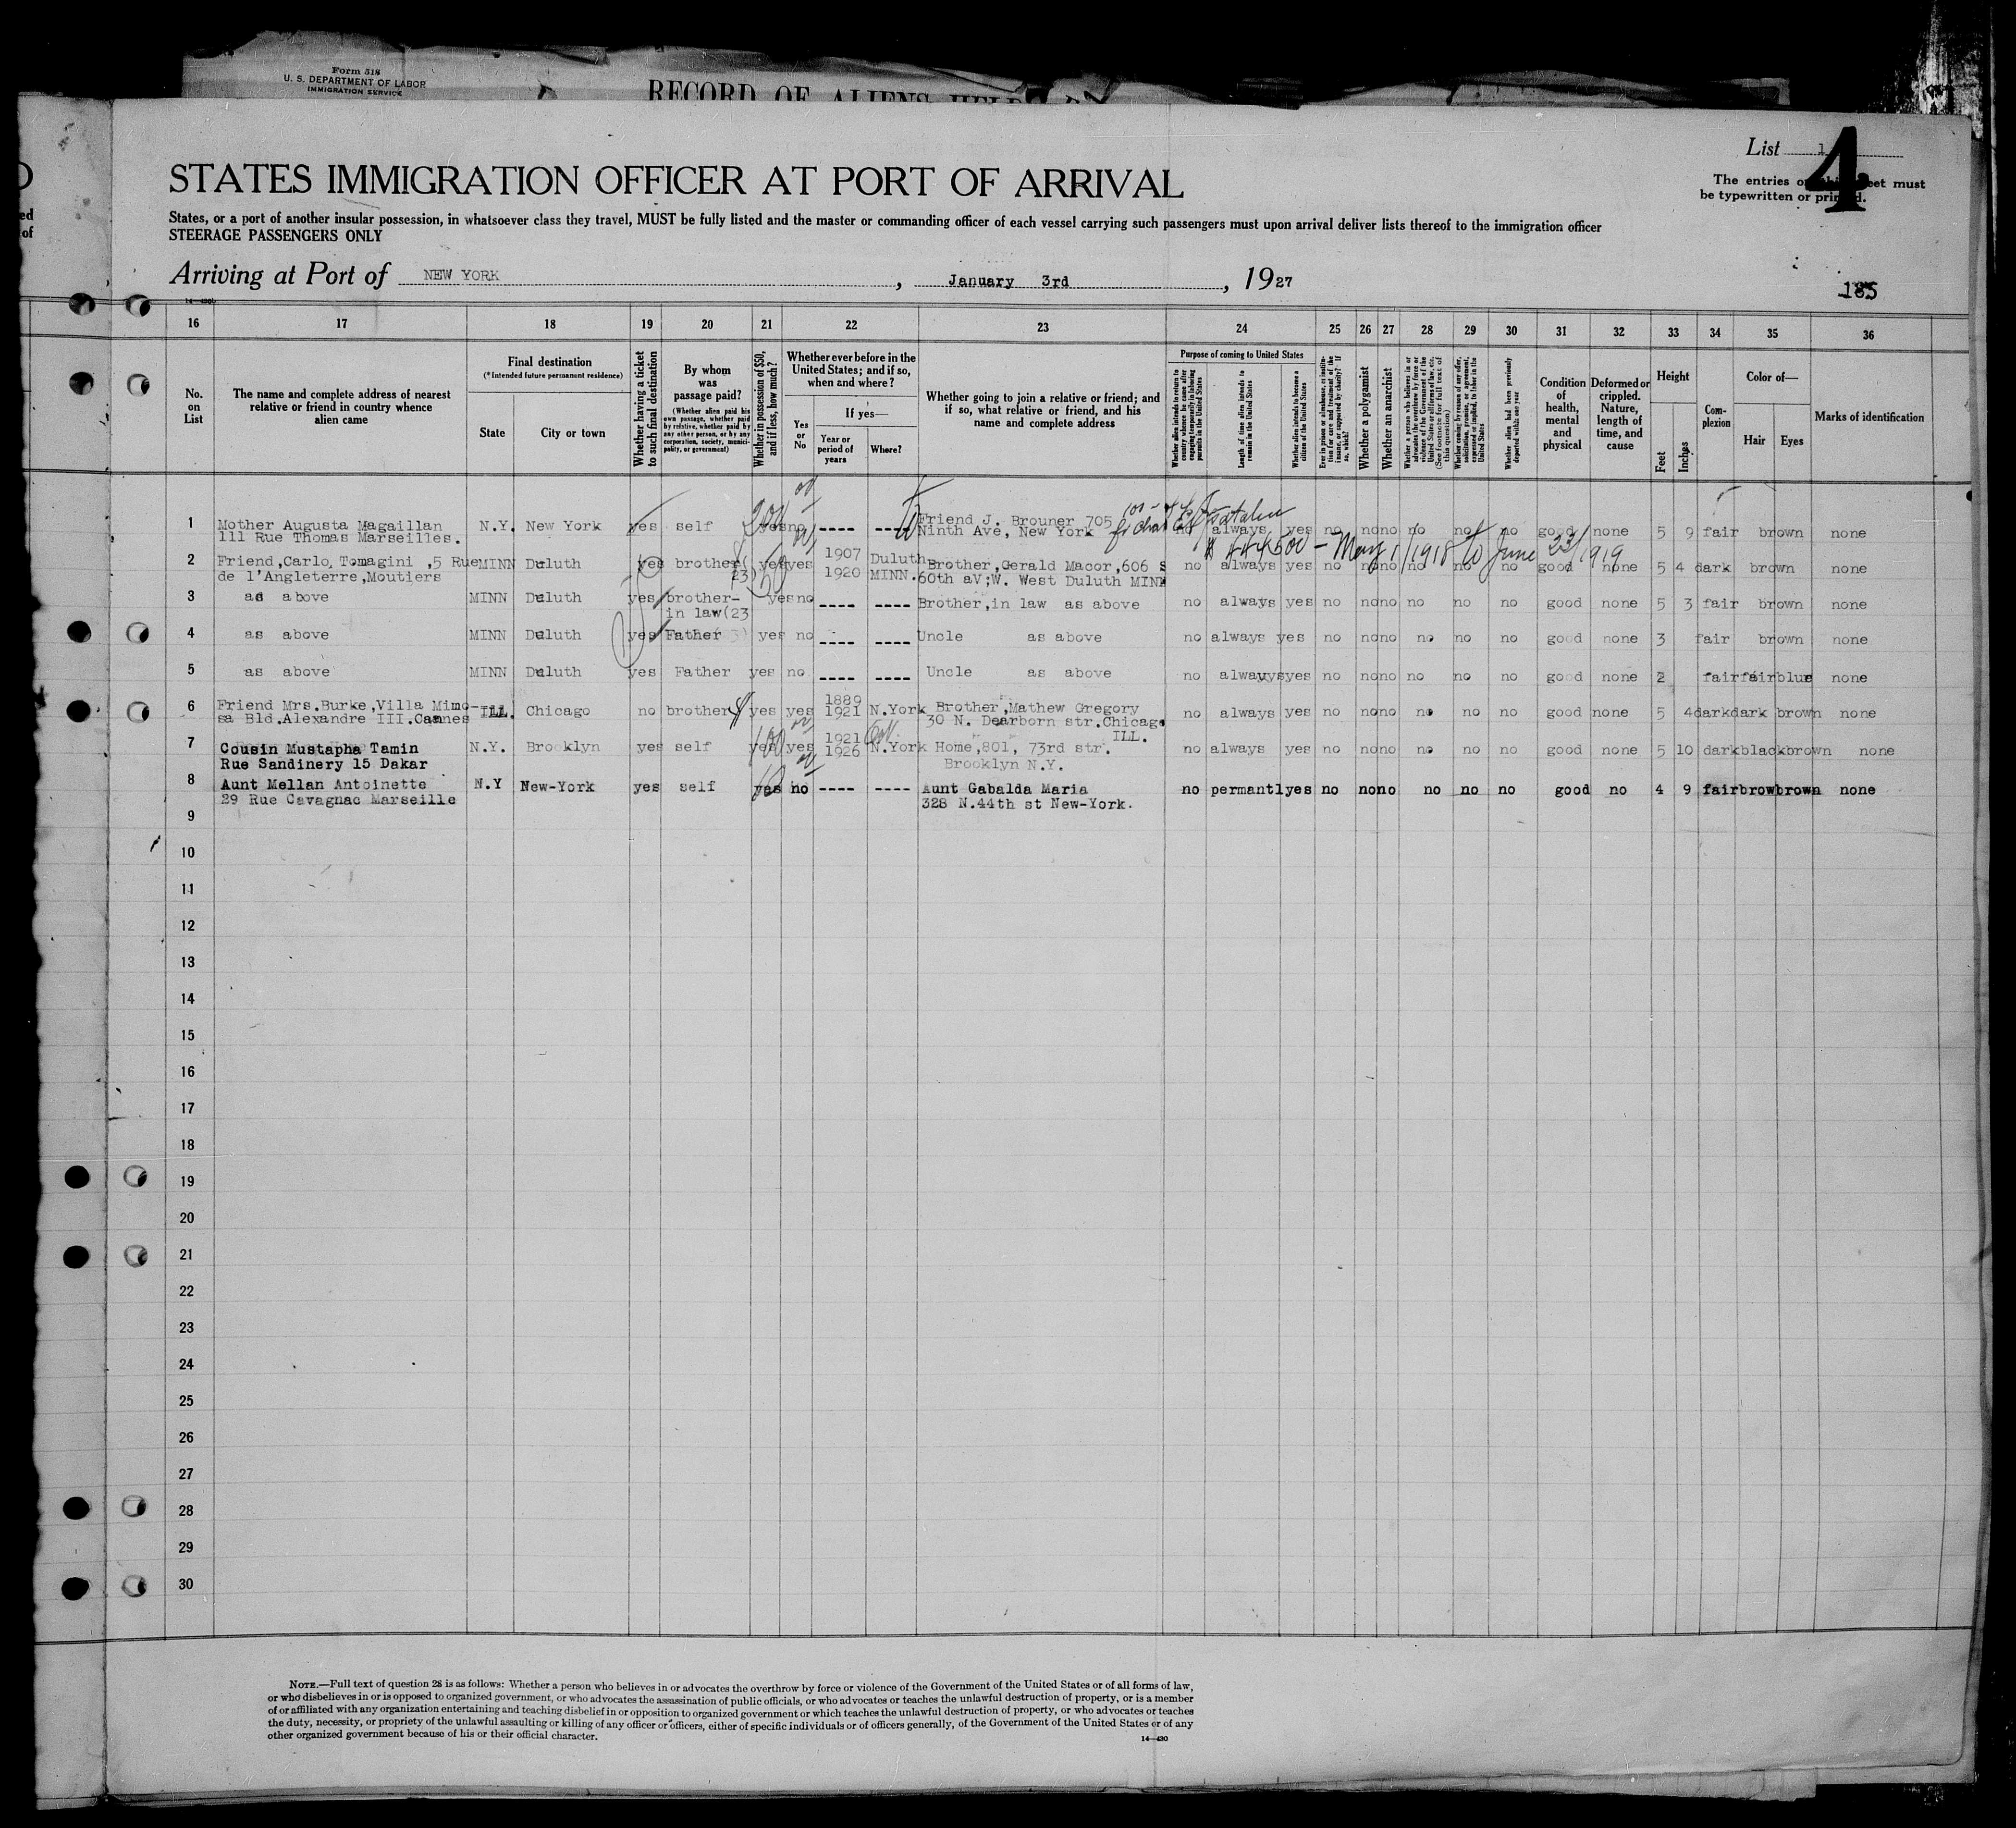 Form 518
U. S. DEPARTMENT OF LABOR
IMMIGRATION SERVICE
RECORD OF ALIENS HELD
List 1
4
The entries on this sheet must
be typewritten or printed.
STATES IMMIGRATION OFFICER AT PORT OF ARRIVAL
States, or a port of another insular possession, in whatsoever class they travel, MUST be fully listed and the master or commanding officer of each vessel carrying such passengers must upon arrival deliver lists thereof to the immigration officer
STEERAGE PASSENGERS ONLY
Arriving at Port of NEW YORK, January 3rd, 1927
185
16 17 18 19 20 21 22 23 24 25 26 27 28 29 30 31 32 33 34 35 36
No. on List
The name and complete address of nearest relative or friend in country whence alien came
Final destination
(*Intended future permanent residence)
State
City or town
Whether having a ticket to such final destination
By whom was passage paid?
(Whether alien paid his own passage, whether paid by relative, whether paid by any other person, or by any corporation, society, municipality, or government)
Whether in possession of $50, and if less, how much?
Whether ever before in the United States; and if so, when and where?
Yes or No
If yes—
Year or period of years
Where?
Whether going to join a relative or friend; and if so, what relative or friend, and his name and complete address
Purpose of coming to United States
Whether alien intends to return to country whence he came after engaging temporarily in laboring pursuits in the United States
Length of time alien intends to remain in the United States
Whether alien intends to become a citizen of the United States
Ever in prison or almshouse, or institution for care and treatment of the insane, or supported by charity? If so, which?
Whether a polygamist
Whether an anarchist
Whether a person who believes in or advocates the overthrow by force or violence of the Government of the United States or all forms of law, etc. (See footnote for full text of this question)
Whether coming by reason of any offer, solicitation, promise, or agreement, expressed or implied, to labor in the United States
Whether alien had been previously deported within one year
Condition of health, mental and physical
Deformed or crippled. Nature, length of time, and cause
Height
Feet
Inches
Complexion
Color of—
Hair
Eyes
Marks of identification
1 Mother Augusta Magaillan N.Y. New York yes self yes no ---- ---- Friend J. Brouner 705 no always yes no no no no no no good none 5 9 fair brown none
111 Rue Thomas Marseilles. Ninth Ave, New York
$ 444500 - May 1/1918 to June 23/1919
2 Friend,Carlo Tomagini ,5 Rue MINN Duluth yes brother yes yes 1907 Duluth Brother,Gerald Macor,606 S no always yes no no no no no no good none 5 4 dark brown none
de l'Angleterre,Moutiers 23 1920 MINN. 60th aV;W. West Duluth MINN
3 as above MINN Duluth yes brother- yes no ---- ---- Brother,in law as above no always yes no no no no no no good none 5 3 fair brown none
in law(23
4 as above MINN Duluth yes Father yes no ---- ---- Uncle as above no always yes no no no no no no good none 3 fair brown none
5 as above MINN Duluth yes Father yes no ---- ---- Uncle as above no alwauys yes no no no no no no good none 2 fair fair blue none
6 Friend Mrs.Burke,Villa Mimo- ILL. Chicago no brother yes yes 1889 N.York Brother,Mathew Gregory no always yes no no no no no no good none 5 4 dark dark brown none
sa Bld.Alexandre III.Cannes 1921 30 N. Dearborn str.Chicago
ILL.
7 Cousin Mustapha Tamin N.Y. Brooklyn yes self yes yes 1921 N.York Home,801, 73rd str. no always yes no no no no no no good none 5 10 dark black brown none
Rue Sandinery 15 Dakar 1926 Brooklyn N.Y.
8 Aunt Mellan Antoinette N.Y New-York yes self yes no ---- ---- Aunt Gabalda Maria no permantl yes no no no no no no good no 4 9 fair brow brown none
29 Rue Cavagnac Marseille 328 N.44th st New-York.
9
10
11
12
13
14
15
16
17
18
19
20
21
22
23
24
25
26
27
28
29
30
NOTE.—Full text of question 28 is as follows: Whether a person who believes in or advocates the overthrow by force or violence of the Government of the United States or of all forms of law,
or who disbelieves in or is opposed to organized government, or who advocates the assassination of public officials, or who advocates or teaches the unlawful destruction of property, or is a member
of or affiliated with any organization entertaining and teaching disbelief in or opposition to organized government or which teaches the unlawful destruction of property, or who advocates or teaches
the duty, necessity, or propriety of the unlawful assaulting or killing of any officer or officers, either of specific individuals or of officers generally, of the Government of the United States or of any
other organized government because of his or their official character.
14—430